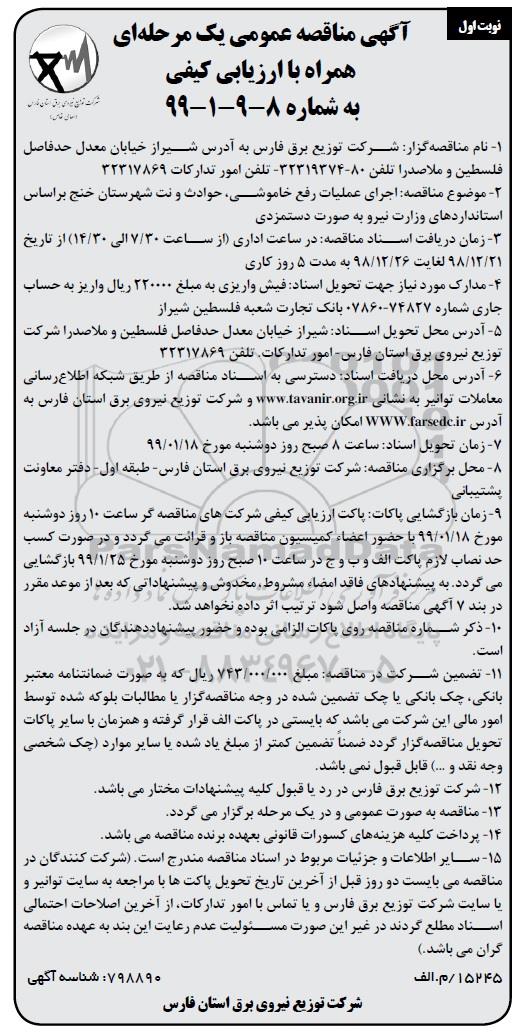 نوبت اول
آگهی مناقصه عمومی یک مرحله‌ای
همراه با ارزیابی کیفی
به شماره ۸-۹-۱-۹۹
شرکت توزیع نیروی برق استان فارس
(سهامی خاص)
۱- نام مناقصه‌گزار: شرکت توزیع برق فارس به آدرس شیراز خیابان معدل حدفاصل
فلسطین و ملاصدرا تلفن ۸۰-۳۲۳۱۹۳۷۴- تلفن امور تدارکات ۳۲۳۱۷۸۶۹
۲- موضوع مناقصه: اجرای عملیات رفع خاموشی، حوادث و نت شهرستان خنج براساس
استانداردهای وزارت نیرو به صورت دستمزدی
۳- زمان دریافت اسناد مناقصه: در ساعت اداری (از ساعت ۷/۳۰ الی ۱۴/۳۰) از تاریخ
۹۸/۱۲/۲۱ لغایت ۹۸/۱۲/۲۶ به مدت ۵ روز کاری
۴- مدارک مورد نیاز جهت تحویل اسناد: فیش واریزی به مبلغ ۲۲۰۰۰۰ ریال واریز به حساب
جاری شماره ۷۴۸۲۷-۰۷۸۶۰ بانک تجارت شعبه فلسطین شیراز
۵- آدرس محل تحویل اسناد: شیراز خیابان معدل حدفاصل فلسطین و ملاصدرا شرکت
توزیع نیروی برق استان فارس- امور تدارکات. تلفن ۳۲۳۱۷۸۶۹
۶- آدرس محل دریافت اسناد: دسترسی به اسناد مناقصه از طریق شبکه اطلاع‌رسانی
معاملات توانیر به نشانی www.tavanir.org.ir و شرکت توزیع نیروی برق استان فارس به
آدرس WWW.farsedc.ir امکان پذیر می باشد.
۷- زمان تحویل اسناد: ساعت ۸ صبح روز دوشنبه مورخ ۹۹/۰۱/۱۸
۸- محل برگزاری مناقصه: شرکت توزیع نیروی برق استان فارس- طبقه اول- دفتر معاونت
پشتیبانی
۹- زمان بازگشایی پاکات: پاکت ارزیابی کیفی شرکت های مناقصه گر ساعت ۱۰ روز دوشنبه
مورخ ۹۹/۰۱/۱۸ با حضور اعضاء کمیسیون مناقصه باز و قرائت می گردد و در صورت کسب
حد نصاب لازم پاکت الف و ب و ج در ساعت ۱۰ صبح روز دوشنبه مورخ ۹۹/۱/۲۵ بازگشایی
می گردد. به پیشنهادهای فاقد امضاء مشروط، مخدوش و پیشنهاداتی که بعد از موعد مقرر
در بند ۷ آگهی مناقصه واصل شود ترتیب اثر داده نخواهد شد.
۱۰- ذکر شماره مناقصه روی پاکات الزامی بوده و حضور پیشنهاددهندگان در جلسه آزاد
است.
۱۱- تضمین شرکت در مناقصه: مبلغ ۷۴۳/۰۰۰/۰۰۰ ریال که به صورت ضمانتنامه معتبر
بانکی، چک بانکی یا چک تضمین شده در وجه مناقصه‌گزار یا مطالبات بلوکه شده توسط
امور مالی این شرکت می باشد که بایستی در پاکت الف قرار گرفته و همزمان با سایر پاکات
تحویل مناقصه‌گزار گردد ضمناً تضمین کمتر از مبلغ یاد شده یا سایر موارد (چک شخصی
وجه نقد و ...) قابل قبول نمی باشد.
۱۲- شرکت توزیع برق فارس در رد یا قبول کلیه پیشنهادات مختار می باشد.
۱۳- مناقصه به صورت عمومی و در یک مرحله برگزار می گردد.
۱۴- پرداخت کلیه هزینه‌های کسورات قانونی بعهده برنده مناقصه می باشد.
۱۵- سایر اطلاعات و جزئیات مربوط در اسناد مناقصه مندرج است. (شرکت کنندگان در
مناقصه می بایست دو روز قبل از آخرین تاریخ تحویل پاکت ها با مراجعه به سایت توانیر و
یا سایت شرکت توزیع برق فارس و یا تماس با امور تدارکات، از آخرین اصلاحات احتمالی
اسناد مطلع گردند در غیر این صورت مسئولیت عدم رعایت این بند به عهده مناقصه
گران می باشد.)
۱۵۲۴۵/م.الف
۷۹۸۸۹۰: شناسه آگهی
شرکت توزیع نیروی برق استان فارس
ParsNamadData
پایگاه اطلاع رسانی مناقصه و مزایده
۰۲۱-۸۸۳۴۹۶۷۰-۵